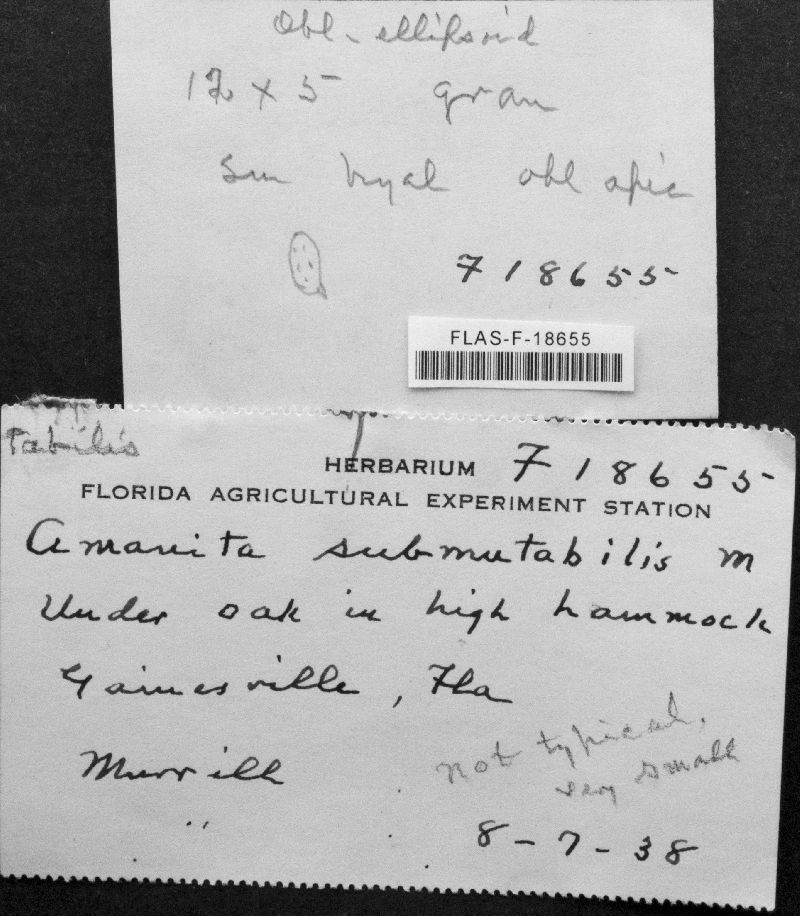 Obl-ellipsoid
12 x 5 gran
Sm hyal obl apic
F 18655
FLAS-F-18655
tabilis
HERBARIUM F 18655
FLORIDA AGRICULTURAL EXPERIMENT STATION
Amanita submutabilis M
Under oak in high hammock
Gainesville, Fla
Murrill
not typical,
very small
8-7-38